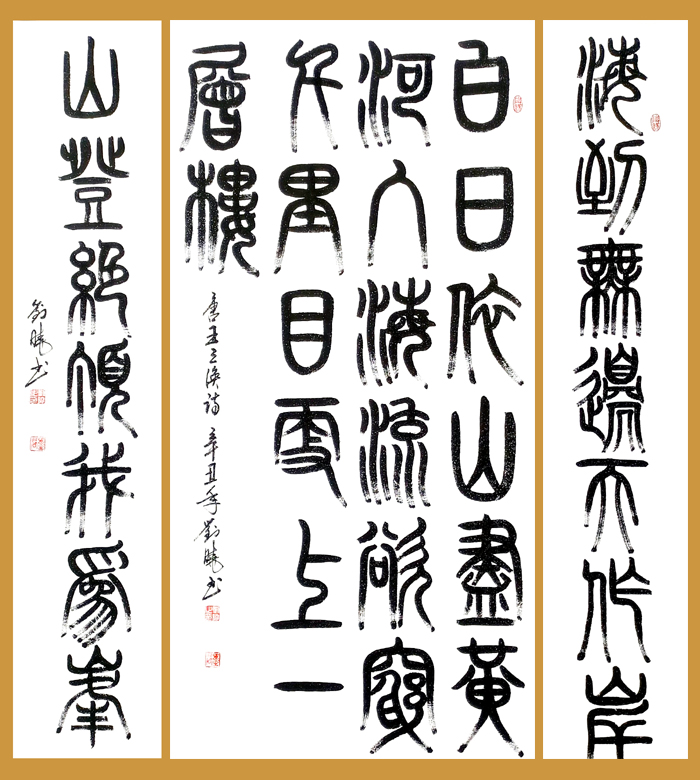 海到無邊天作岸
白日依山盡黃
河入海流欲窮
千里目更上一
層樓
唐王之渙詩 辛丑年劉曉书
山登絕頂我爲峯
劉曉书